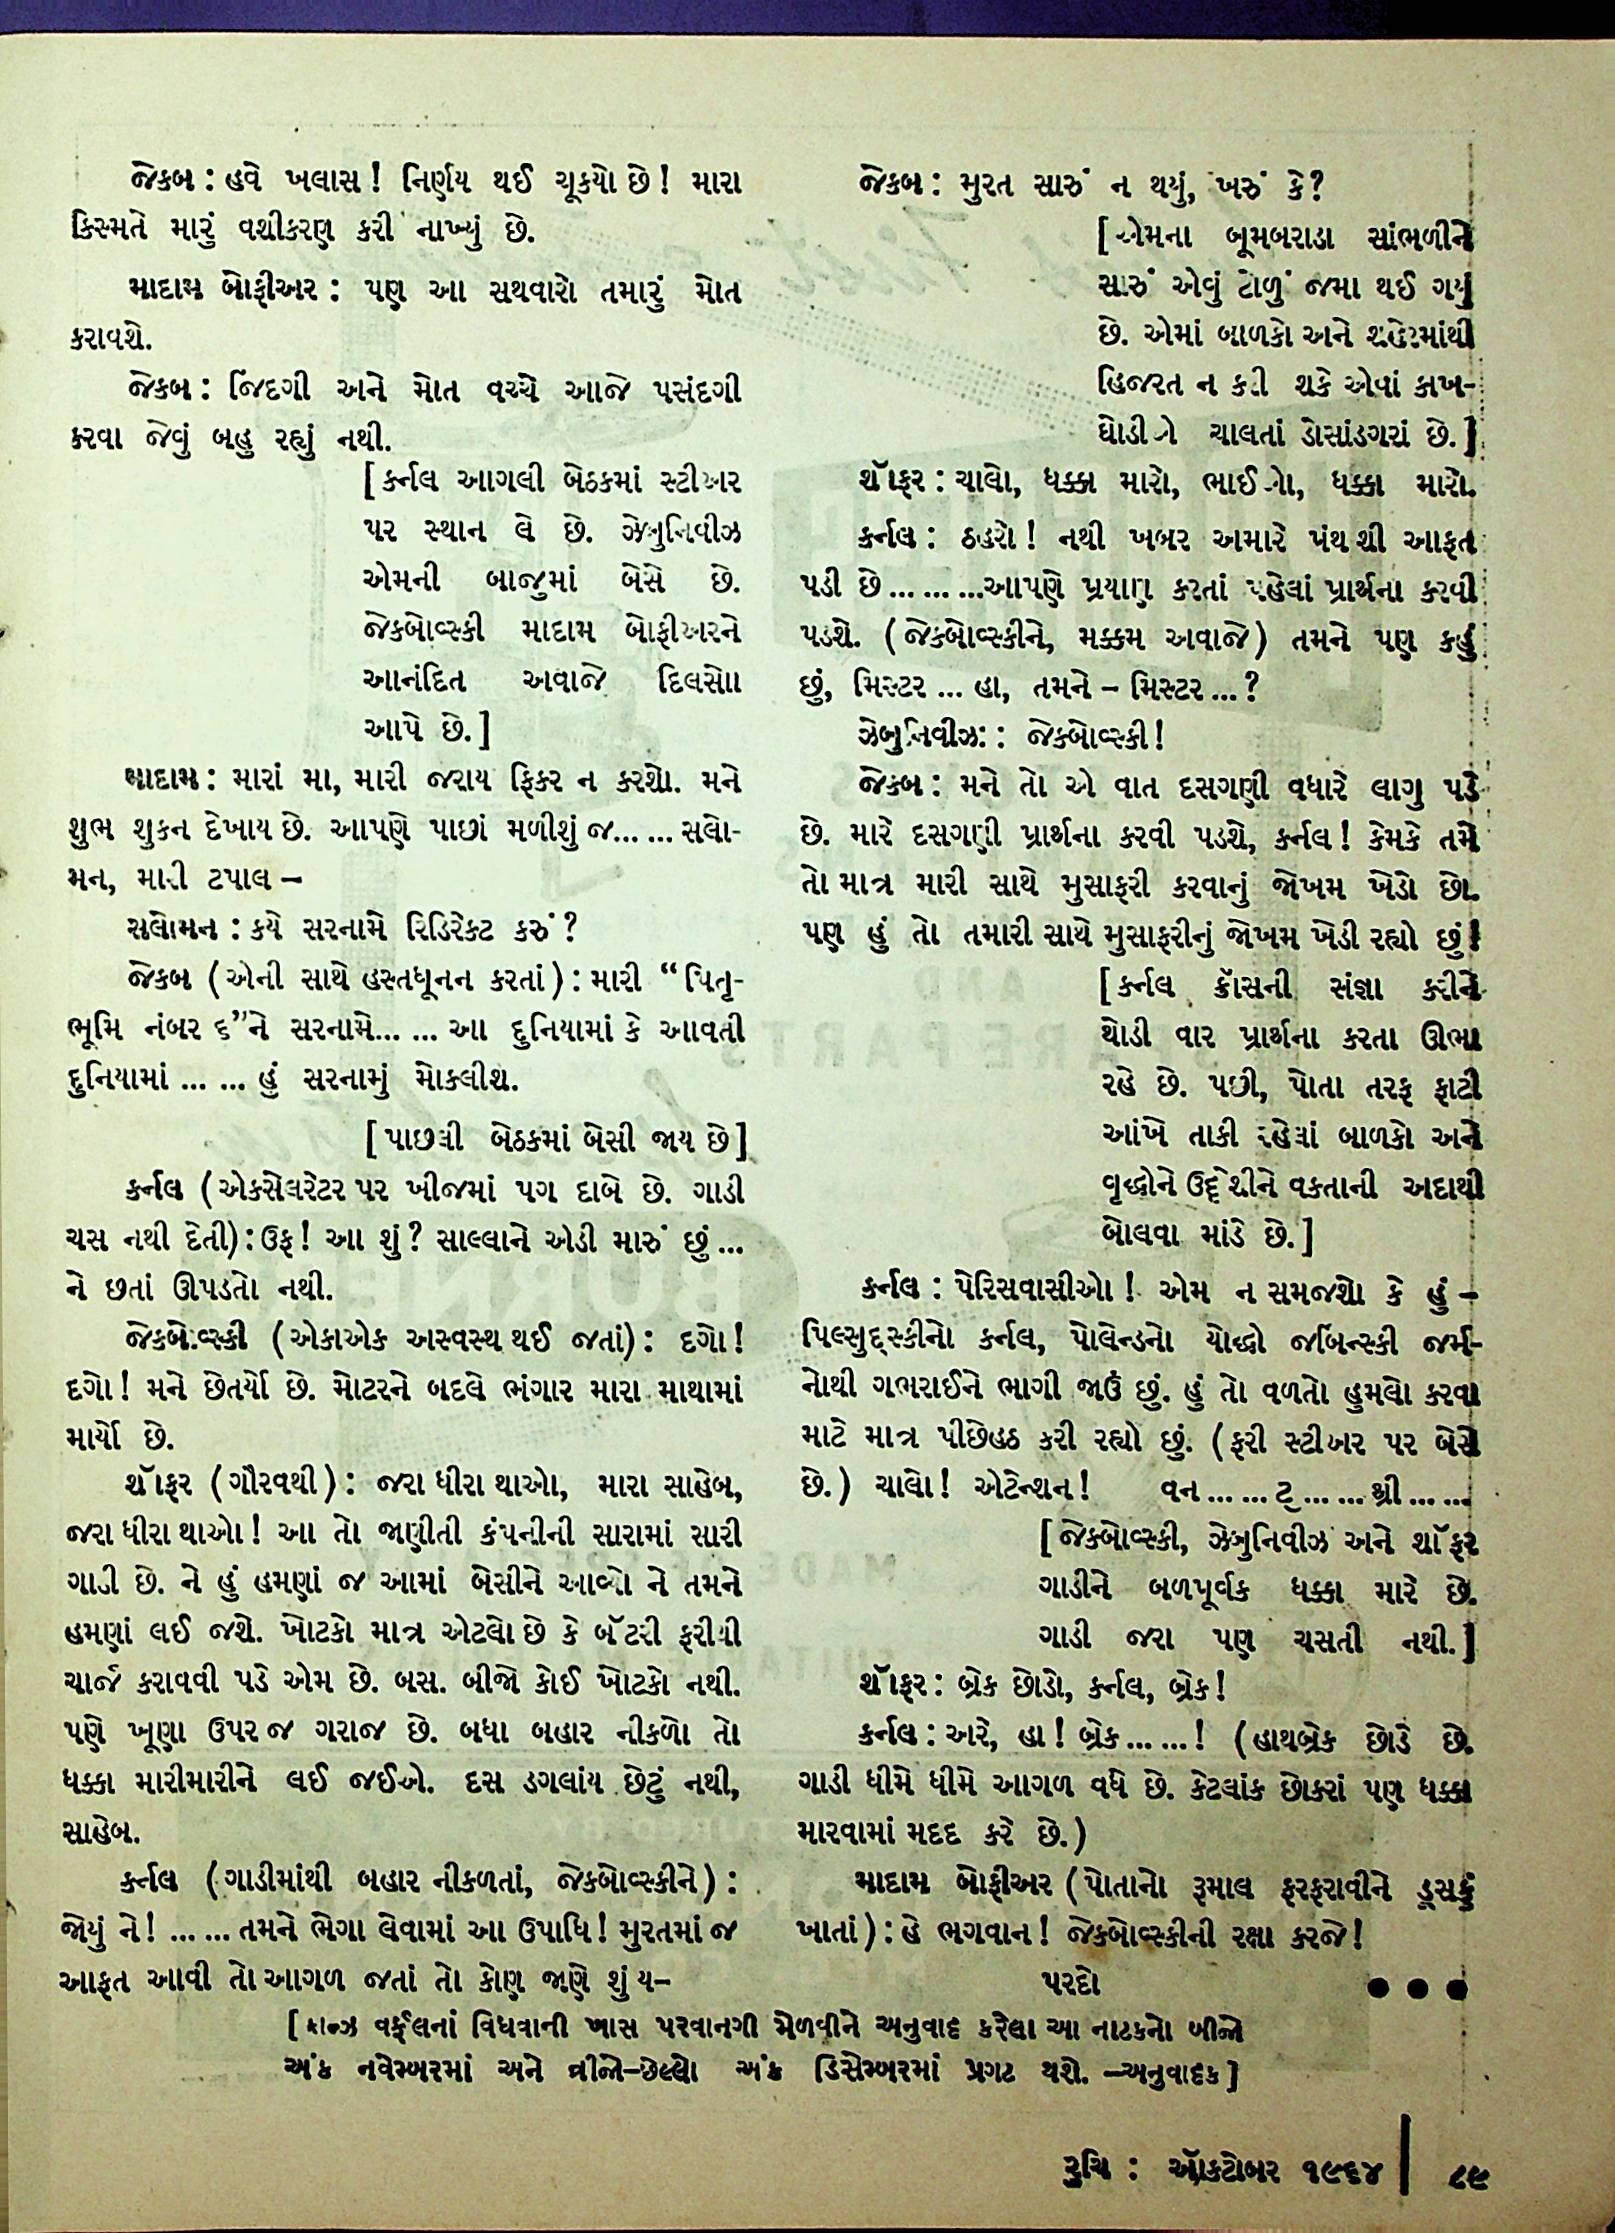 જેકબ : હવે ખલાસ! નિર્ણય થઈ ચૂકયો છે! મારા
કિસ્મતે મારું વશીકરણ કરી નાખ્યું છે.
માદામ બોફીઅર : પણ આ સથવારો તમારું મોત
કરાવશે.
જેકબ : જિંદગી અને મોત વચ્ચે આજે પસંદગી
કરવા જેવું બહુ રહ્યું નથી.
[કર્નલ આગલી બેઠકમાં સ્ટીઅર
પર સ્થાન લે છે. ઝેબુનિવીઝ
એમની બાજુમાં બેસે છે.
જેકબોવ્સ્કી માદામ બોફીઅરને
આનંદિત અવાજે દિલસોા
આપે છે.]
માદામ : મારાં મા, મારી જરાય ફિકર ન કરશો. મને
શુભ શુકન દેખાય છે. આપણે પાછાં મળીશું જ... ... સલો-
મન, મારી ટપાલ –
સલોમન : કયે સરનામે રિડિરેક્ટ કરું?
જેકબ (એની સાથે હસ્તધૂનન કરતાં) : મારી “પિતૃ-
ભૂમિ નંબર ૬”ને સરનામે... ... આ દુનિયામાં કે આવતી
દુનિયામાં ... ... હું સરનામું મોકલીશ.
[પાછલી બેઠકમાં બેસી જાય છે]
કર્નલ (એક્સેલરેટર પર ખીજમાં પગ દાબે છે. ગાડી
ચસ નથી દેતી) : ઉફ! આ શું? સાલ્લાને એડી મારું છું ...
ને છતાં ઊપડતો નથી.
જેકબોવ્સ્કી (એકાએક અસ્વસ્થ થઈ જતાં) : દગો!
દગો! મને છેતર્યો છે. મોટરને બદલે ભંગાર મારા માથામાં
માર્યો છે.
શૉફર (ગૌરવથી) : જરા ધીરા થાઓ, મારા સાહેબ,
જરા ધીરા થાઓ! આ તો જાણીતી કંપનીની સારામાં સારી
ગાડી છે. ને હું હમણાં જ આમાં બેસીને આવ્યો ને તમને
હમણાં લઈ જશે. ખોટકો માત્ર એટલો છે કે બૅટરી ફરીથી
ચાર્જ કરાવવી પડે એમ છે. બસ. બીજો કોઈ ખોટકો નથી.
પણે ખૂણા ઉપર જ ગરાજ છે. બધા બહાર નીકળો તો
ધક્કા મારીમારીને લઈ જઈએ. દસ ડગલાંય છેટું નથી,
સાહેબ.
કર્નલ (ગાડીમાંથી બહાર નીકળતાં, જેકબોવ્સ્કીને) :
જોયું ને! ... ... તમને ભેગા લેવામાં આ ઉપાધિ! મુરતમાં જ
આફત આવી તો આગળ જતાં તો કોણ જાણે શું ય–
જેકબ : મુરત સારું ન થયું, ખરું કે?
[એમના બૂમબરાડા સાંભળીને
સારું એવું ટોળું જમા થઈ ગયું
છે. એમાં બાળકો અને શહેરમાંથી
હિજરત ન કરી શકે એવાં કાખ-
ઘોડીએ ચાલતાં ડોસાંડગરાં છે.]
શૉફર : ચાલો, ધક્કા મારો, ભાઈઓ, ધક્કા મારો.
કર્નલ : ઠહરો! નથી ખબર અમારે પંથ શી આફત
પડી છે ... ... ...આપણે પ્રયાણ કરતાં પહેલાં પ્રાર્થના કરવી
પડશે. (જેકબોવ્સ્કીને, મક્કમ અવાજે) તમને પણ કહું
છું, મિસ્ટર ... હા, તમને – મિસ્ટર ... ?
ઝેબુનિવીઝ : : જેકબોવ્સ્કી!
જેકબ : મને તો એ વાત દસગણી વધારે લાગુ પડે
છે. મારે દસગણી પ્રાર્થના કરવી પડશે, કર્નલ! કેમકે તમે
તો માત્ર મારી સાથે મુસાફરી કરવાનું જોખમ ખેડો છો.
પણ હું તો તમારી સાથે મુસાફરીનું જોખમ ખેડી રહ્યો છું!
[કર્નલ ક્રૉસની સંજ્ઞા કરીને
થોડી વાર પ્રાર્થના કરતા ઊભા
રહે છે. પછી, પોતા તરફ ફાટી
આંખે તાકી રહેલાં બાળકો અને
વૃદ્ધોને ઉદ્દેશીને વક્તાની અદાથી
બોલવા માંડે છે.]
કર્નલ : પેરિસવાસીઓ! એમ ન સમજશો કે હું –
પિલ્સુદ્સ્કીનો કર્નલ, પોલેન્ડનો યોદ્ધો જર્બિન્સ્કી જર્મ-
નોથી ગભરાઈને ભાગી જાઉં છું. હું તો વળતો હુમલો કરવા
માટે માત્ર પીછેહઠ કરી રહ્યો છું. (ફરી સ્ટીઅર પર બેસે
છે.) ચાલો! એટેન્શન! વન ... ... ટૂ ... ... થ્રી ... ...
[જેકબોવ્સ્કી, ઝેબુનિવીઝ અને શૉફર
ગાડીને બળપૂર્વક ધક્કા મારે છે.
ગાડી જરા પણ ચસતી નથી.]
શૉફર : બ્રેક છોડો, કર્નલ, બ્રેક!
કર્નલ : અરે, હા! બ્રેક ... ...! (હાથબ્રેક છોડે છે.
ગાડી ધીમે ધીમે આગળ વધે છે. કેટલાંક છોકરાં પણ ધક્કા
મારવામાં મદદ કરે છે.)
માદામ બોફીઅર (પોતાનો રૂમાલ ફરફરાવીને ડૂસકું
ખાતાં) : હે ભગવાન! જેકબોવ્સ્કીની રક્ષા કરજે!
પરદો ● ● ●
[ફ્રાન્ઝ વર્ફેલનાં વિધવાની ખાસ પરવાનગી મેળવીને અનુવાદ કરેલા આ નાટકનો બીજો
અંક નવેમ્બરમાં અને ત્રીજો–છેલ્લો અંક ડિસેમ્બરમાં પ્રગટ થશે. –અનુવાદક]
રુચિ : ઑક્ટોબર ૧૯૬૪ | ૮૯